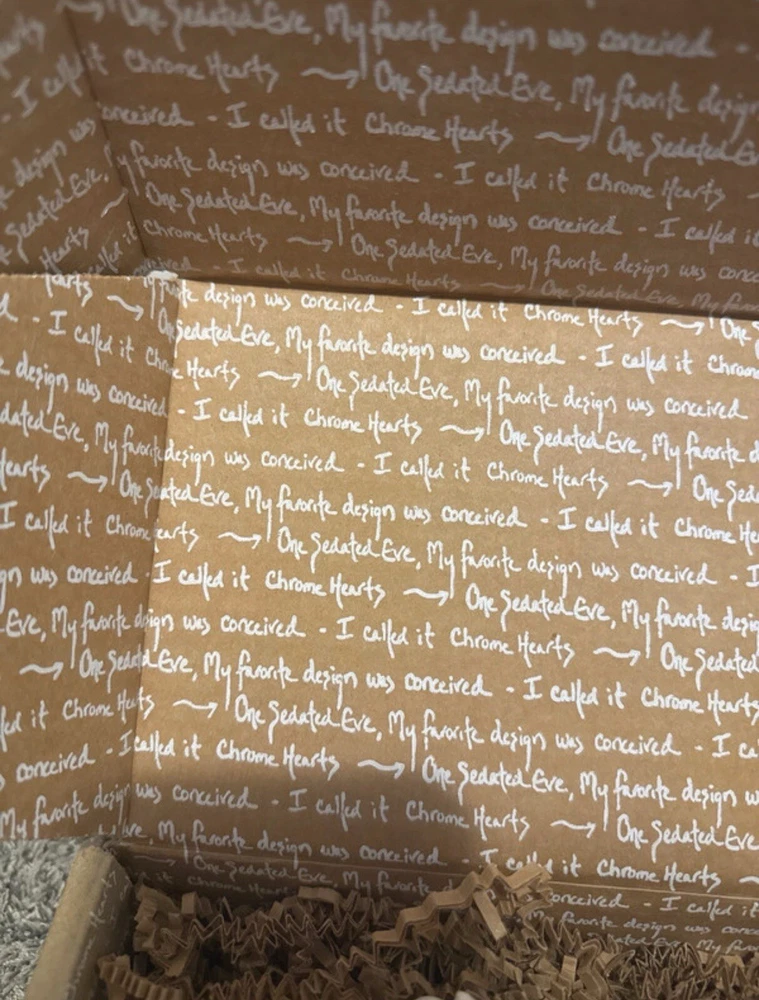 One Sedated Eve, My favorite design was conceived -
- I called it Chrome Hearts → One Sedated Eve, My favorite design
design was conceived - I called it Chrome Hearts → One Sedated Eve
Sedated Eve, My favorite design was conceived - I called it Chrome Hearts
Hearts → One Sedated Eve, My favorite design was conceived - I called it
called it Chrome Hearts → One Sedated Eve, My favorite design was
conceived - I called it Chrome Hearts → One Sedated Eve, My
Hearts → My favorite design was conceived - I called it Chrome Hearts → One
- I called it One Sedated Eve, My favorite design was conceived - I called it Chrome
design was conceived Hearts → One Sedated Eve, My favorite design was conceived
Sedated Eve, My favorite - I called it Chrome Hearts → One Sedated Eve, My favorite
Hearts → One Sedated design was conceived - I called it Chrome Hearts → One
I called it Chrome Eve, My favorite design was conceived - I called it Chrome
was conceived Hearts → One Sedated Eve, My favorite design was conceived - I
Eve, My favorite - I called it Chrome Hearts → One Sedated Eve, My favorite
→ One Sedated design was conceived - I called it Chrome Hearts → One Sedated
it Chrome Hearts Eve, My favorite design was conceived - I called it Chrome Hearts
conceived - → One Sedated Eve, My favorite design was conceived - I
My favorite design I called it Chrome Hearts → One Sedated Eve, My favorite design
was conceived - I called it Chrome Hearts → One Sedated Eve
My favorite design was conceived - I called it Chrome Hearts
→ One Sedated Eve, My favorite conceived - I called it
it Chrome My favorite design was